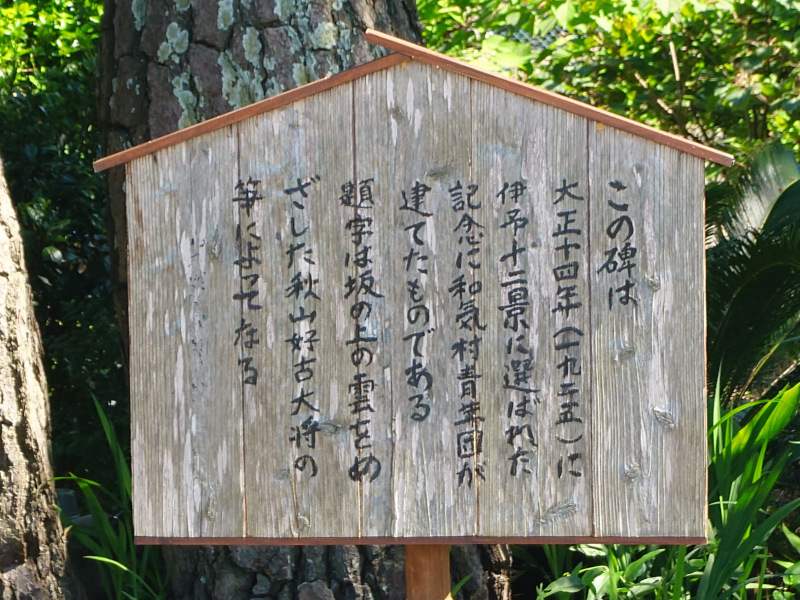 この碑は
大正十四年(一九二五)に
伊予十二景に選ばれた
記念に和気村青年団が
建てたものである
題字は坂の上の雲をめ
ざした秋山好古大将の
筆によってなる